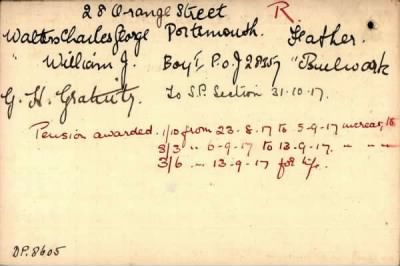 28 Orange Street R.
Walters Charles George Portsmouth. Father.
" William J. Boy I. P.O. J 28357 "Bulwark
G. H. Gratuity. To S.P. Section 31.10.17.
Pension awarded. 1/10 from 23-8-17 to 5-9-17 increas
3/3 " 6-9-17 to 13-9-17. " "
3/6 " 13-9-17 for life.
DP.8605